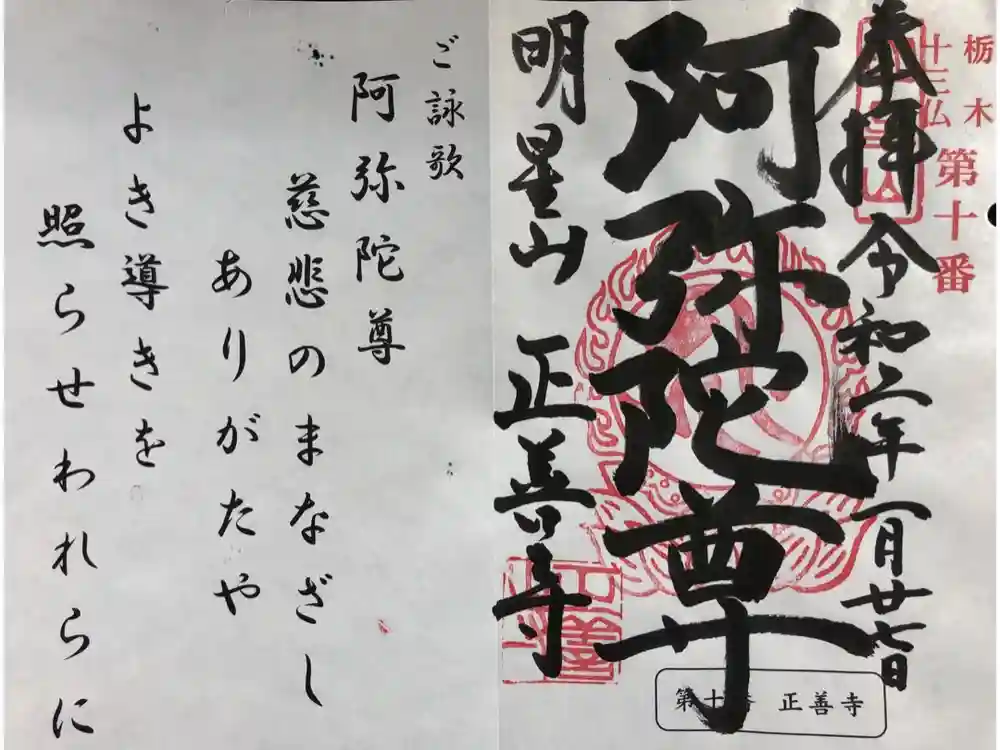 栃木
十三仏
第十番
奉拝 令和二年一月廿七日
阿弥陀尊
明星山 正善寺
正善
第十番 正善寺
ご詠歌
阿弥陀尊
慈悲のまなざし
ありがたや
よき導きを
照らせわれらに